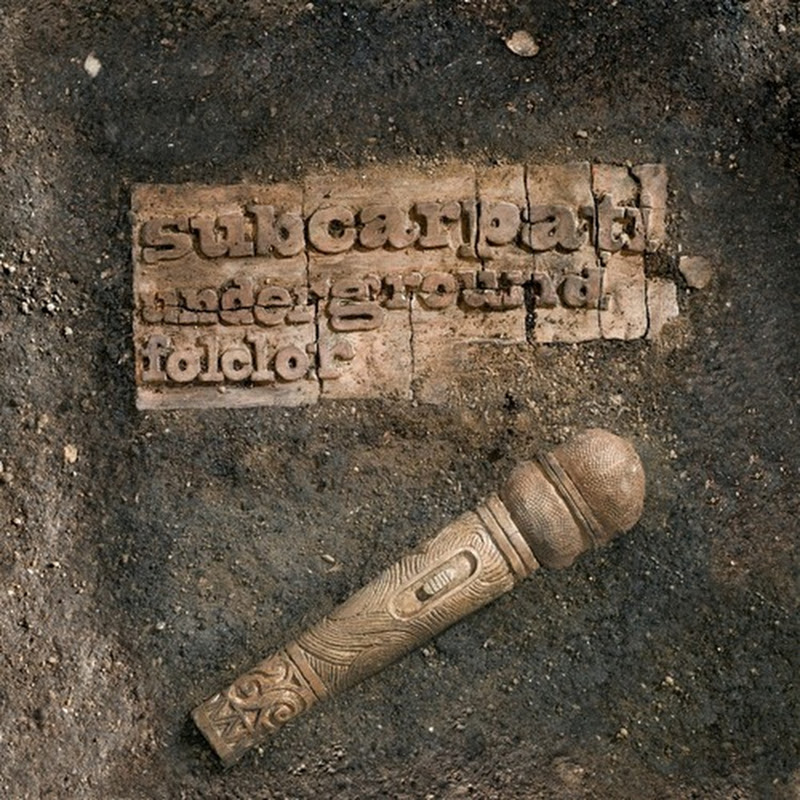 subcarpați
underground
folclor